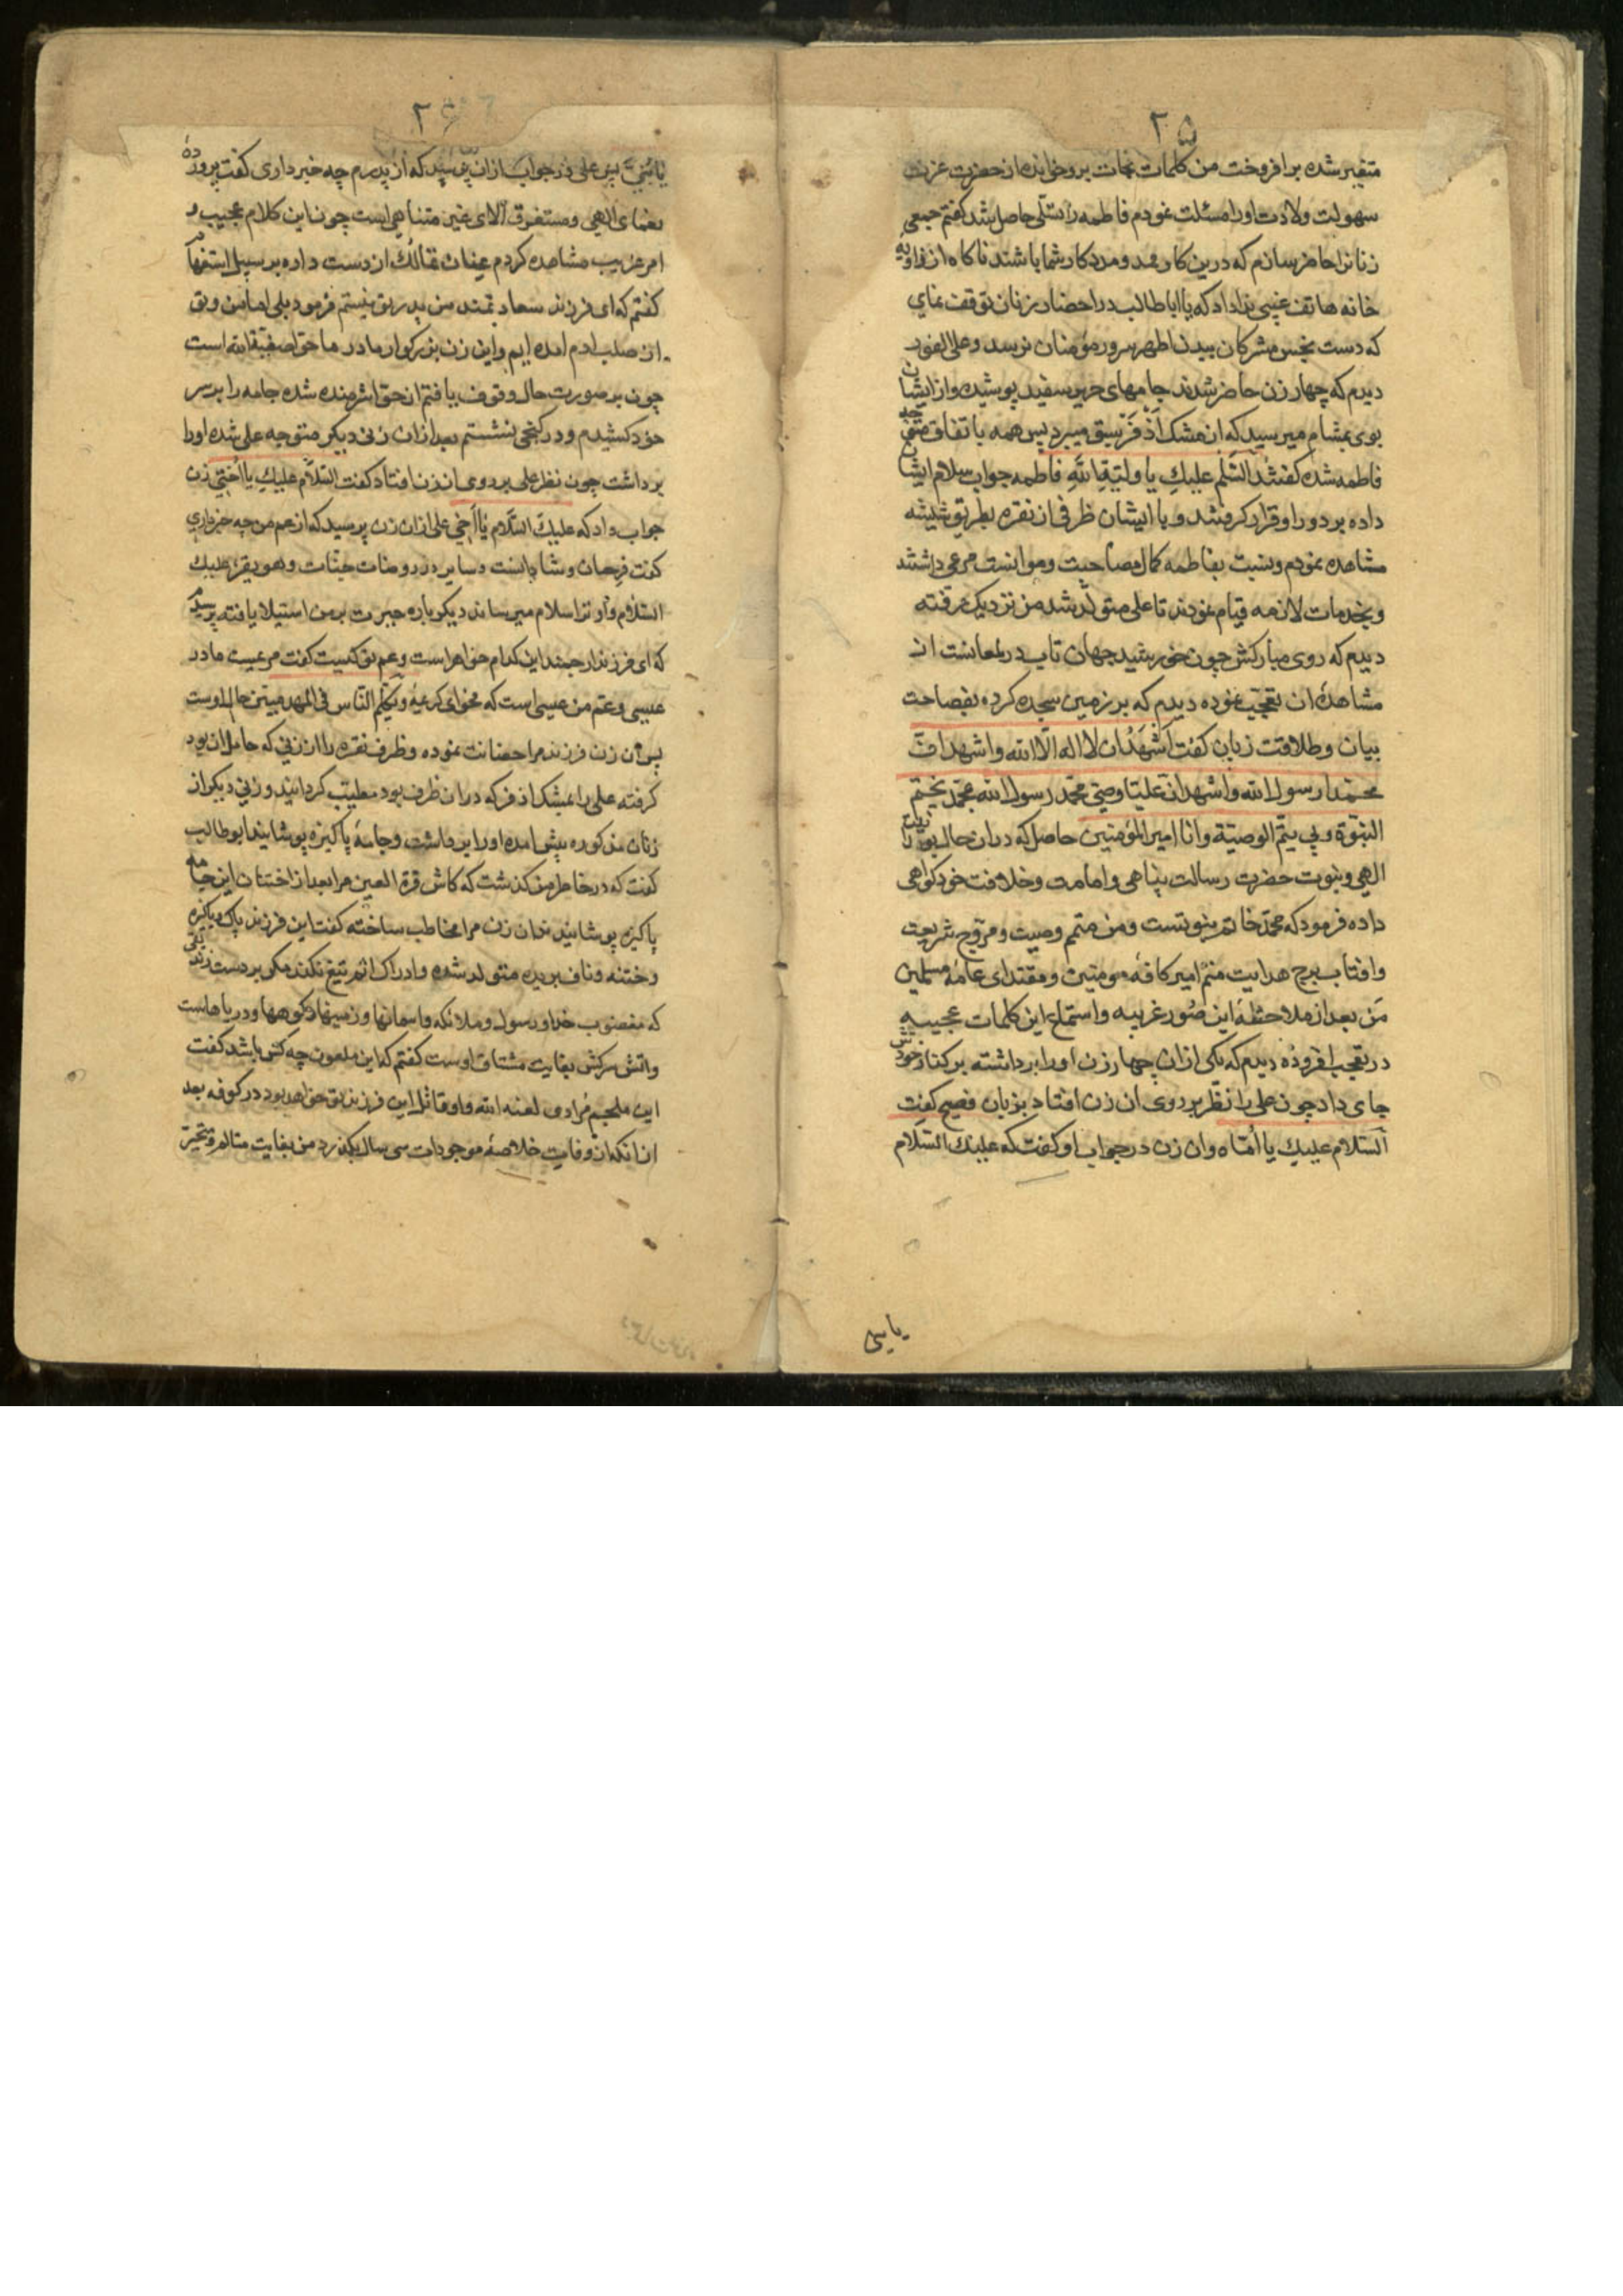 ۲۵
متغیر شده برافروخت من کلمات نجات برو خوانده از حضرت عزت
سهولت ولادت اورا مسئلت نمودم فاطمه را تسلی حاصل شد گفتم جمعی
زنانرا حاضر سازم که درین کار ممد و مددکار شما باشند ناکاه از زاویهٔ
خانه هاتف غیبی ندا داد که یا اباطالب در احضار زنان توقف نمای
که دست نجس مشرکان ببدن اطهر سرور مؤمنان نرسد و علی الفور
دیدم که چهار زن حاضر شدند جامهای حریر سفید پوشیده و از ایشان
بوی بمشام میرسید که از مشک اذفر سبق میبرد پس همه باتفاق متوجه
فاطمه شده گفتند السّلم علیكِ یا ولیّة اللّهِ فاطمه جواب سلام ایشان
داده بر دور او قرار گرفتند و با ایشان ظرفی از نقره بطریق شیشه
مشاهده نمودم و نسبت بفاطمه کمال مصاحبت و موانست مرعی داشتند
و بخدمات لازمه قیام نمودند تا علی متولّد شد من نزدیک رفته
دیدم که روی مبارکش چون خورشید جهان تاب در لمعانست از
مشاهدهٔ آن تعجب نموده دیدم که بر زمین سجده کرده بفصاحت
بیان و طلاقت زبان گفت اَشهَدُ ان لا اله الّا الله و اشهد انّ
محمّدا رسول الله و اشهد انّ علیّا وصیّ محمّد رسول الله بمحمّد یختم
النبّوة و بی یتمّ الوصیّة و انا امیر المؤمنین حاصل که دران حال بوحدانیت
الهی و بنوبت حضرت رسالت پناهی و امامت و خلافت خود گواهی
داده فرمود که محمّد خاتم نبوتست و من متمم وصیت و مروّج شریعت
و افتاب برج هدایت منم امیر کافهٔ مومنین و مقتدای عامهٔ مسلمین
من بعد از ملاحظهٔ این صُور غریبه و استماع این کلمات عجیبه
در تعجب افزوده دیدم که یکی ازان چهار زن اورا برداشته بر کنار خودش
جای داد چون علی را نظر بر روی ان زن افتاد بزبان فصیح گفت
السّلام علیكِ یا اُمّاه و ان زن در جواب او گفت که علیك السّلام
یا بنی
۲۶
یا بُنیَّ پس علی در جواب ازان پرسید که از پدرم چه خبر داری گفت پرورده
نعمای الهی و مستغرق آلای غیر متناهی است چون این کلام عجیب و
امر غریب مشاهده کردم عنان تمالُك از دست داده بر سبیل استفهام
گفتم که ای فرزند سعادتمند من پدر تو نیستم فرمود بلی اما من و تو
از صلب ادم امده ایم و این زن بزرکوار مادر ما حوّا صفیة الله است
چون بر صورت حال وقوف یافتم از حوّا شرمنده شده جامه را بر سر
خود کشیدم و در کنجی بنشستم بعد ازان زنی دیکر متوجه علی شده اورا
برداشت چون نظر علی بر روی ان زن افتاد گفت السّلام علیكِ یا اُختی زن
جواب داد که علیكَ السّلام یا اَخی علی ازان زن پرسید که از عم من چه خبر داری
گفت فرحان و شادانست و سایر در روضات جنّات و هو یقرء علیك
السّلام و او ترا سلام میرساند دیکر باره حیرت بر من استیلا یافته پرسیدم
که ای فرزند ارجمند این کدام خواهر است و عم تو کیست گفت مریمست مادر
عیسی و عمّ من عیسی است که فحوای کریمهٔ و یکلّم النّاس فی المهد مبیّن حال اوست
پس ان زن فرزند مرا حضانت نموده و ظرف نقره را ازان زنی که حامل ان بود
گرفته علی را بمشک اذفر که دران ظرف بود مطیّب گردانیدند و زنی دیکر از
زنان مذکوره پیش امده اورا برداشت و جامهٔ پاکیزه پوشانید ابوطالب
گفت که در خاطر من گذشت که کاش قرة العین مرا بعد از اختتان این جامه
پاکیزه پوشانیدند ان زن مرا مخاطب ساخته گفت این فرزند پاک و پاکیزه
و ختنه و ناف بریده متولد شده و ادراک الم تیغ نکند مگر بر دست زندیقی
که مغضوب خدا و رسول و ملائکه و اسمانها و زمینها و کوهها و دریاهاست
و اتش سرکش بغایت مشتاق اوست گفتم که این ملعون چه کس باشد گفت
ابن ملجم مُرادی لعنه الله و او قاتل این فرزند تو خواهد بود در کوفه بعد
از انکه از وفات خلاصهٔ موجودات سی سال بگذرد من بغایت متالم و متحیّر